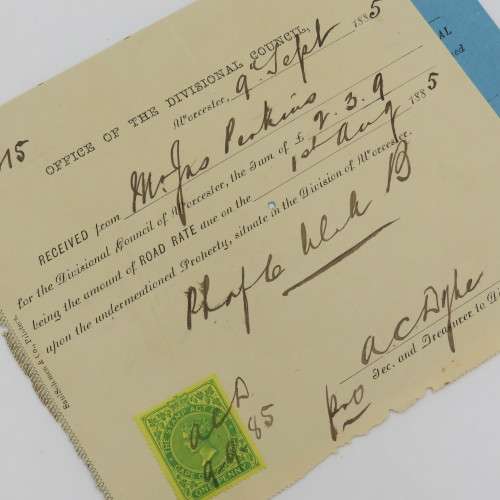 15
OFFICE OF THE DIVISIONAL COUNCIL,
Worcester, 9 Sept 1885
RECEIVED from Mr Jas Perkins
for the Divisional Council of Worcester, the Sum of £ 2. 3. 9
being the amount of ROAD RATE due on the 1st Aug 1885
upon the undermentioned Property, situate in the Division of Worcester.
B
A C Dyke
pro Sec. and Treasurer to Di
ACD
9-9-85
STAMP ACT
ONE PENNY